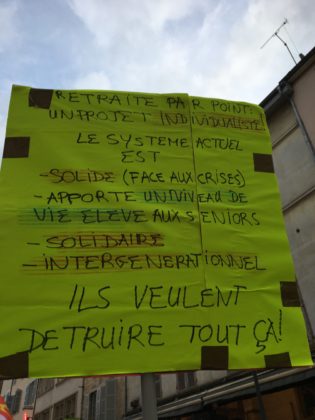 RETRAITE PAR POINTS
UN PROJET INDIVIDUALISTE!
LE SYSTEME ACTUEL
EST
- SOLIDE (FACE AUX CRISES)
- APPORTE UN NIVEAU DE
VIE ELEVE AUX SENIORS
- SOLIDAIRE
- INTERGENERATIONNEL
ILS VEULENT
DETRUIRE TOUT ÇA!